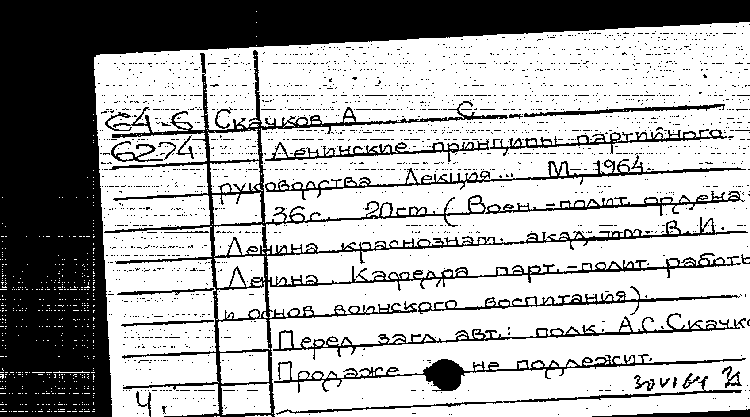 64-6 Скачков, А С
6274 Ленинские принципы партийного
руководства Лекция.. М., 1964.
36с. 20см. (Воен.-полит. ордена
Ленина краснознам. акад. им. В.И.
Ленина. Кафедра парт.-полит. работы
и основ воинского воспитания).
Перед загл. авт.: полк. А.С.Скачко
Продаже не подлежит.
Ч.